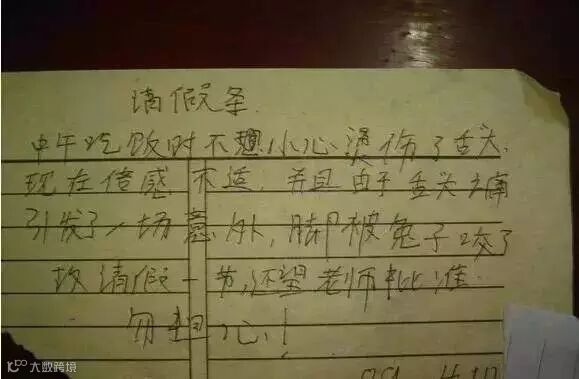 请假条
中午吃饭时不想小心烫伤了舌头.
现在倍感不适,并且由于舌头之痛
引发了一场意外,脚被兔子咬了
故请假一节,还望老师批准.
勿担心!
大数跨境